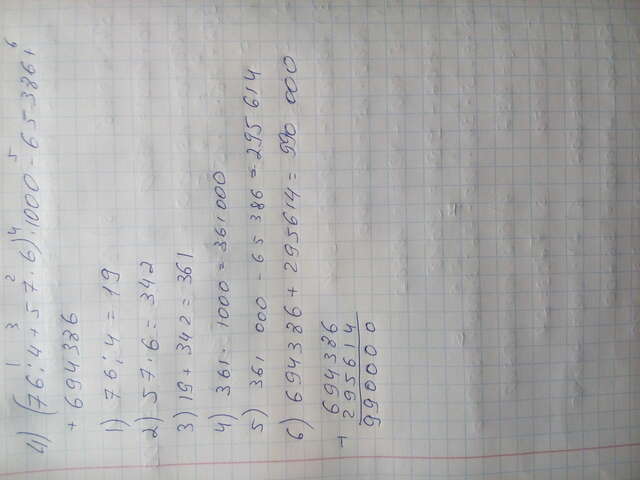 1 3 2 4 5 6
4) (76:4+57·6)·1000-65386+
+694386
1) 76:4=19
2) 57·6=342
3) 19+342=361
4) 361·1000=361000
5) 361 000-65386=295614
6) 694386+295614=990 000
+ 694386
295614
990000